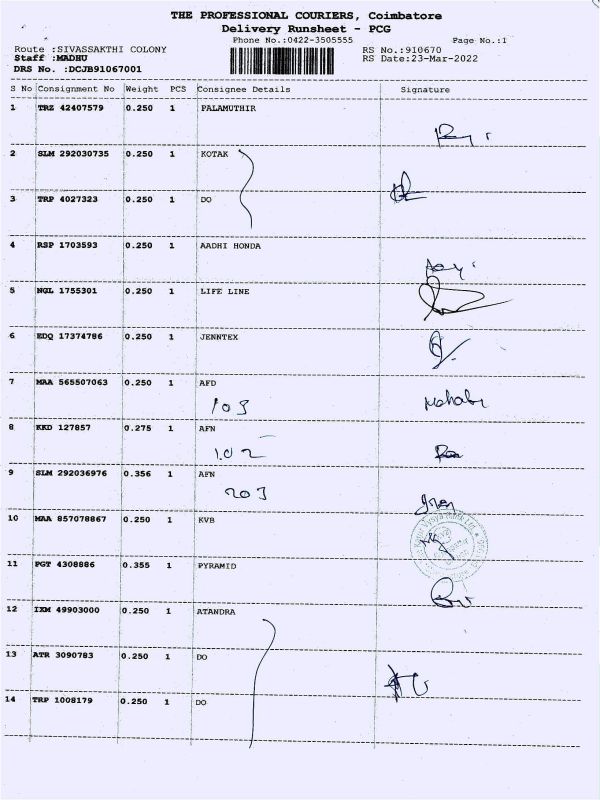 THE PROFESSIONAL COURIERS, Coimbatore
Delivery Runsheet - PCG
Phone No.:0422-3505555 Page No.:1
Route :SIVASSAKTHI COLONY RS No.:910670
Staff :MADHU RS Date:23-Mar-2022
DRS No. :DCJB91067001
S No Consignment No Weight PCS Consignee Details Signature
1 TRZ 42407579 0.250 1 PALAMUTHIR
2 SLM 292030735 0.250 1 KOTAK
3 TRP 4027323 0.250 1 DO
4 RSP 1703593 0.250 1 AADHI HONDA
5 NGL 1755301 0.250 1 LIFE LINE
6 EDQ 17374786 0.250 1 JENNTEX
7 MAA 565507063 0.250 1 AFD
103
8 KKD 127857 0.275 1 AFN
102
9 SLM 292036976 0.356 1 AFN
203
10 MAA 857078867 0.250 1 KVB
11 PGT 4308886 0.355 1 PYRAMID
12 IXM 49903000 0.250 1 ATANDRA
13 ATR 3090783 0.250 1 DO
14 TRP 1008179 0.250 1 DO